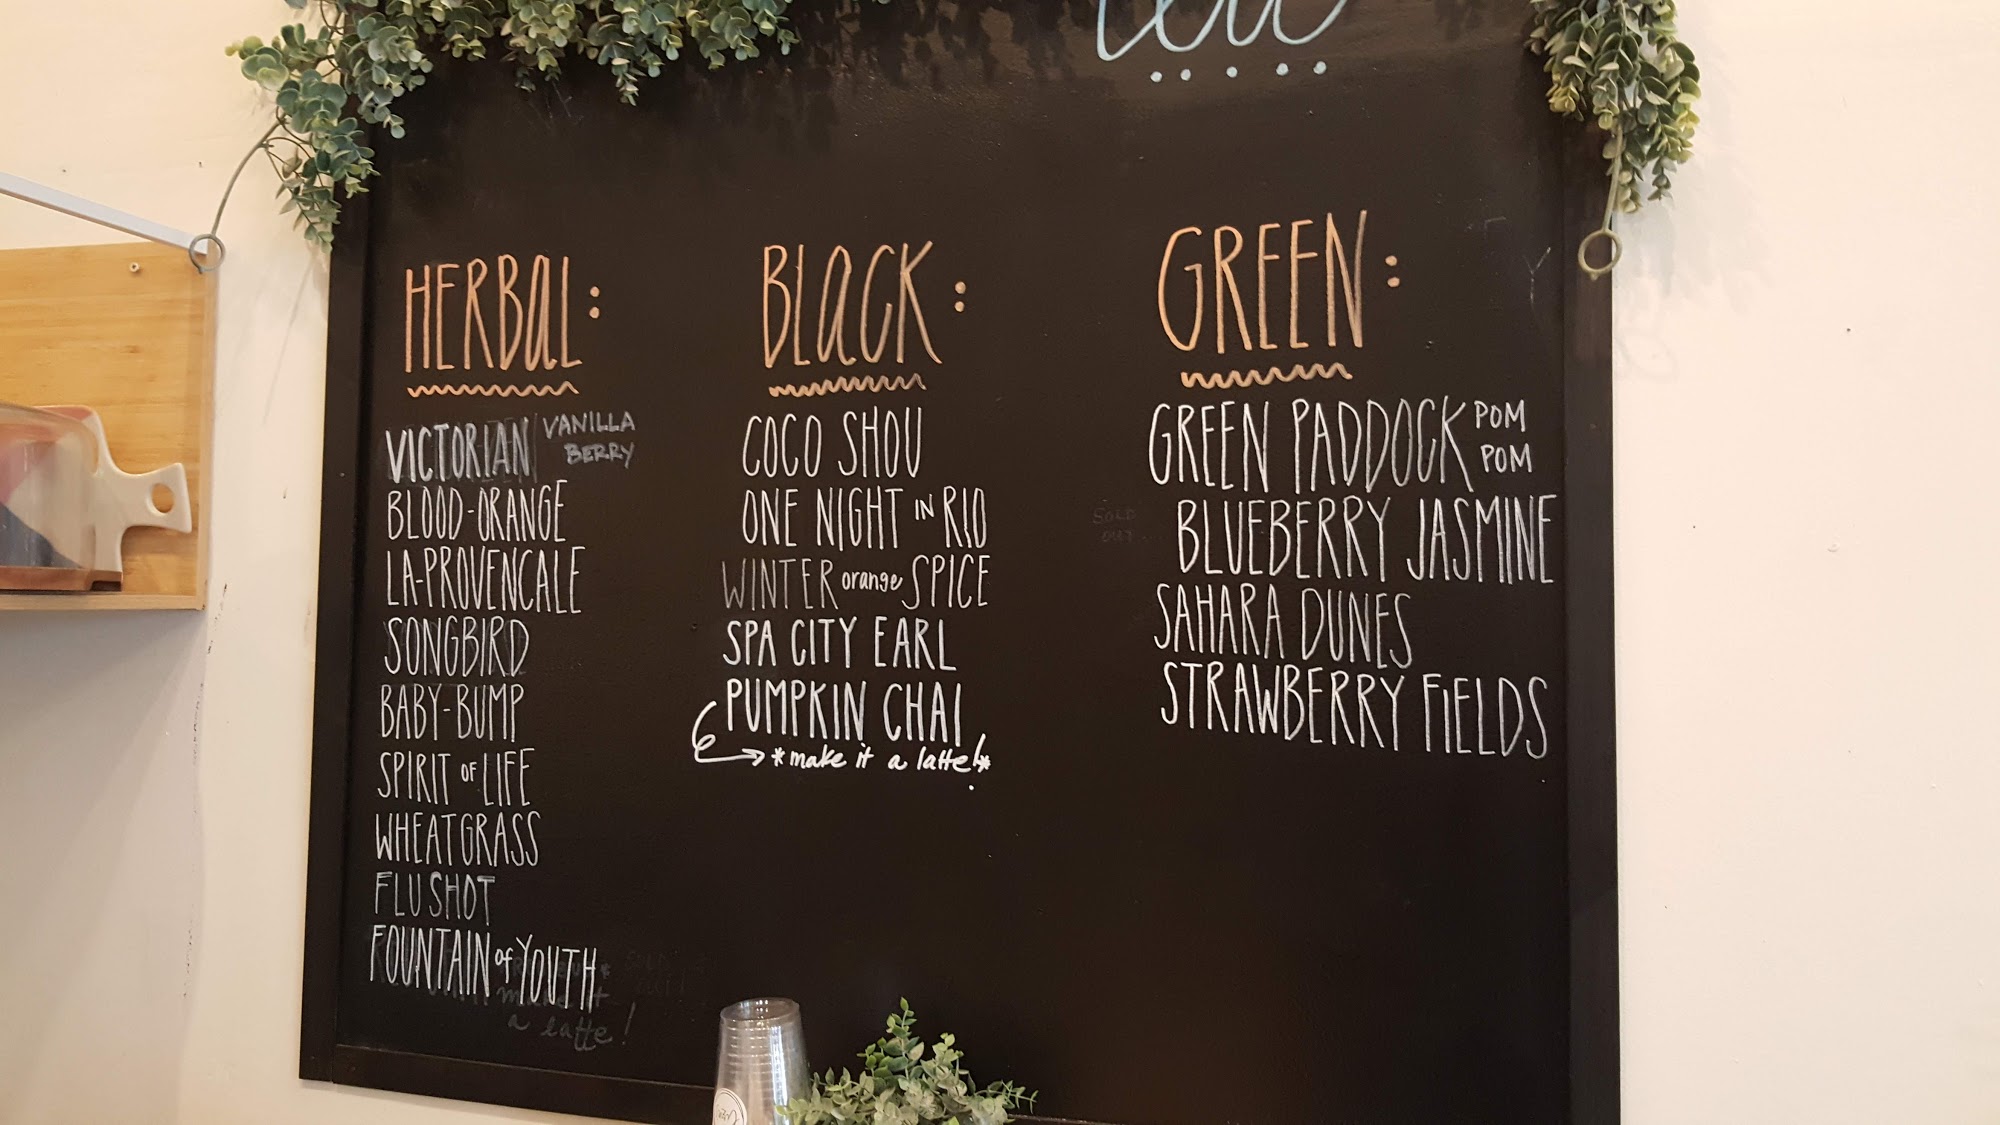 tea
HERBAL:
VICTORIAN VANILLA
BERRY
BLOOD-ORANGE
LA-PROVENCALE
SONGBIRD
BABY-BUMP
SPIRIT OF LIFE
WHEATGRASS
FLU SHOT
FOUNTAIN of YOUTH
make it
a latte!
BLACK:
COCO SHOU
ONE NIGHT IN RIO
WINTER orange SPICE
SPA CITY EARL
PUMPKIN CHAI
*make it a latte!*
GREEN:
GREEN PADDOCK POM
POM
SOLD
OUT
BLUEBERRY JASMINE
SAHARA DUNES
STRAWBERRY FIELDS